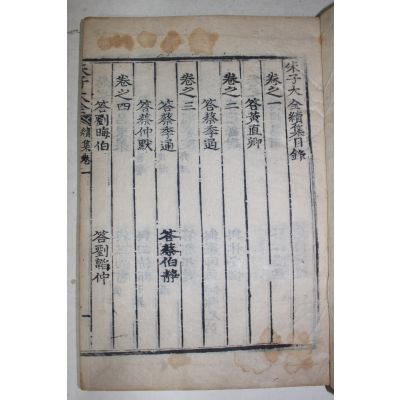 朱子大全續集目錄
卷之一
答黃直卿
卷之二
答蔡季通
卷之三
答蔡季通 答蔡伯靜
答蔡仲默
卷之四
答劉晦伯 答劉韜仲
朱子大全續集卷一 一